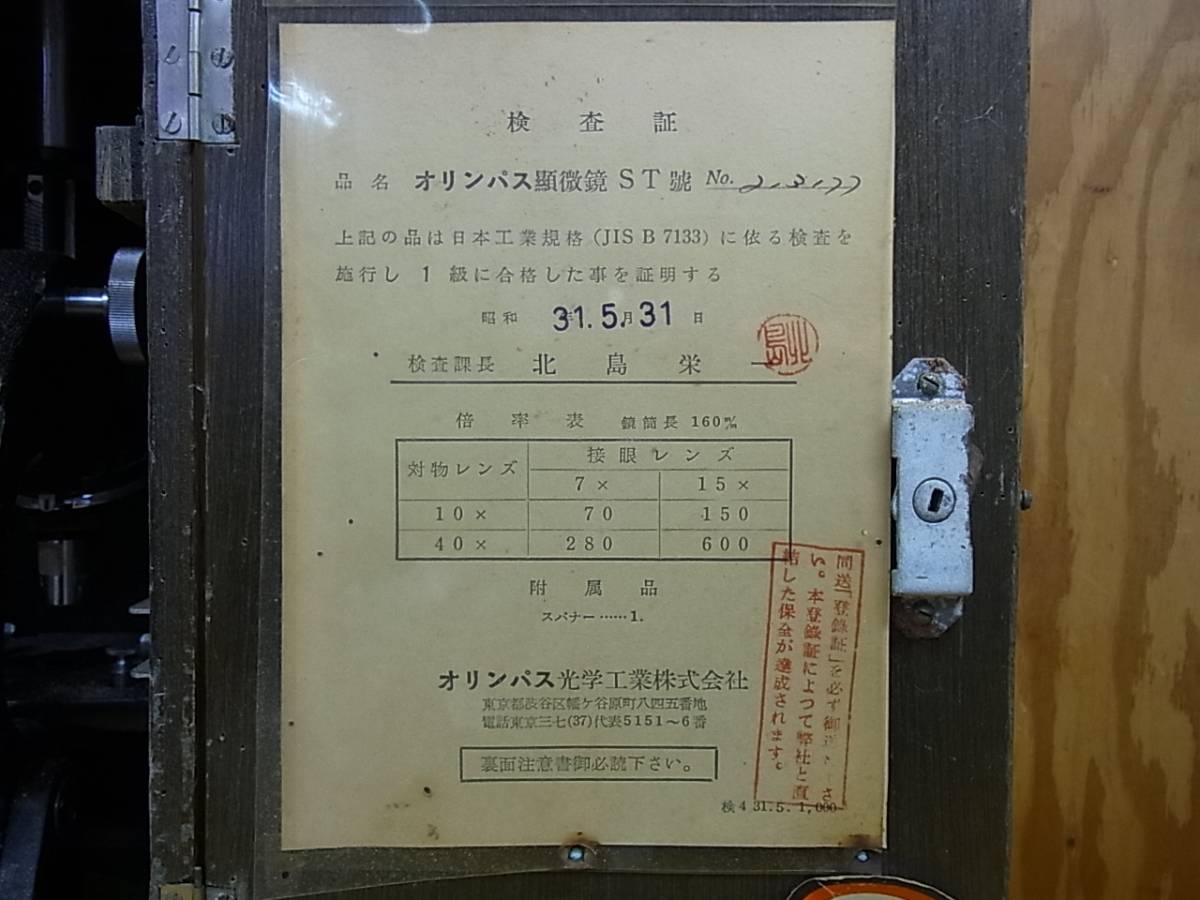 検査証
品名 オリンパス顯微鏡 ST號 No. 213177
上記の品は日本工業規格(JIS B 7133)に依る検査を
施行し 1 級に合格した事を証明する
昭和 31.年 5.月 31 日
検査課長 北島栄一
北島
倍率表 鏡筒長 160m/m
対物レンズ 接眼レンズ
7× 15×
10× 70 150
40× 280 600
附属品
スパナー……1.
オリンパス光学工業株式会社
東京都渋谷区幡ケ谷原町八四五番地
電話東京三七(37)代表5151～6番
裏面注意書御必読下さい。
間送「登錄証」を必ず御送さ
い。本登錄証によつて弊社と直
結した保全が達成されます。
検4 31.5. 1,000